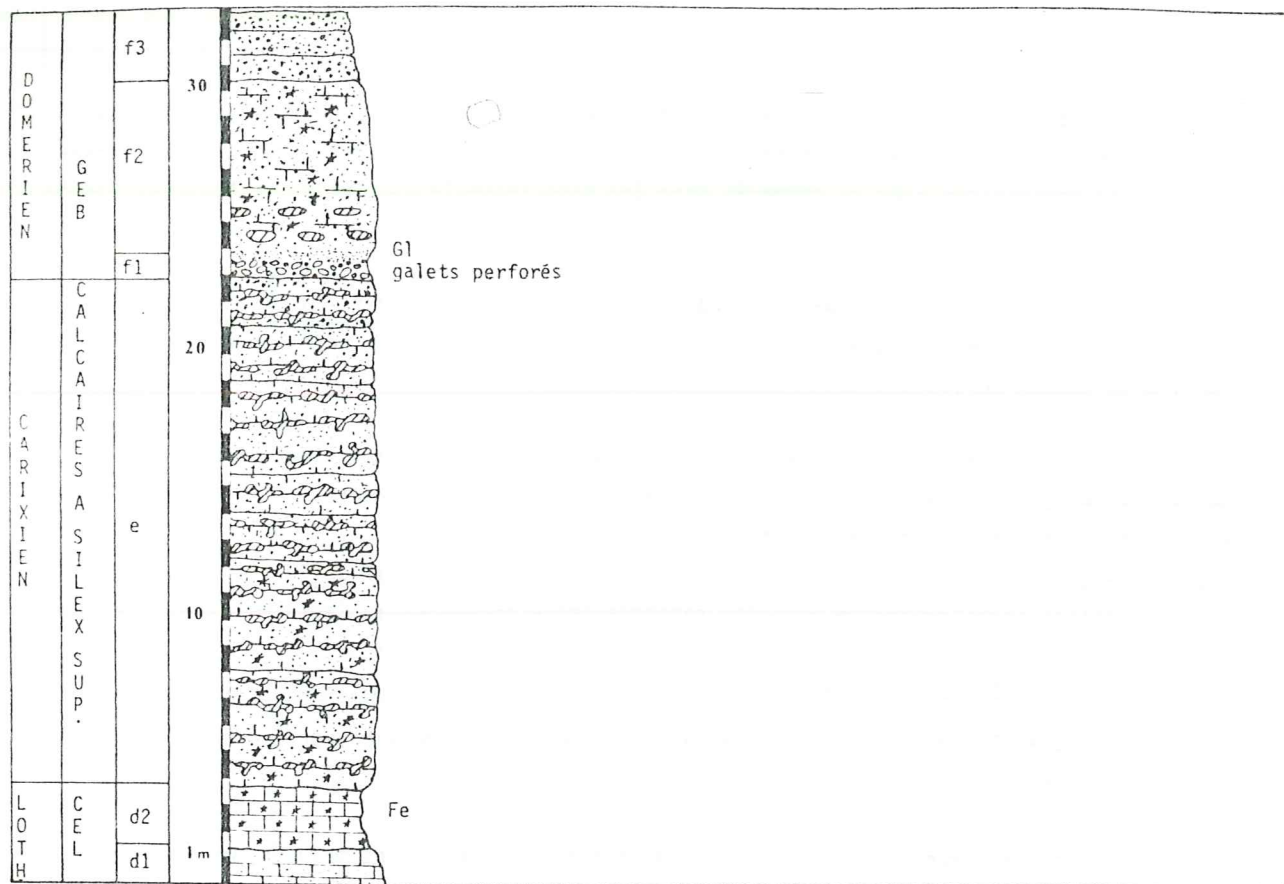 DOMERIEN
GEB
f3
30
f2
f1
Gl
galets perforés
CARIXIEN
CALCAIRES A SILEX SUP.
20
e
10
LOTH.
CEL
d2
Fe
1m
d1